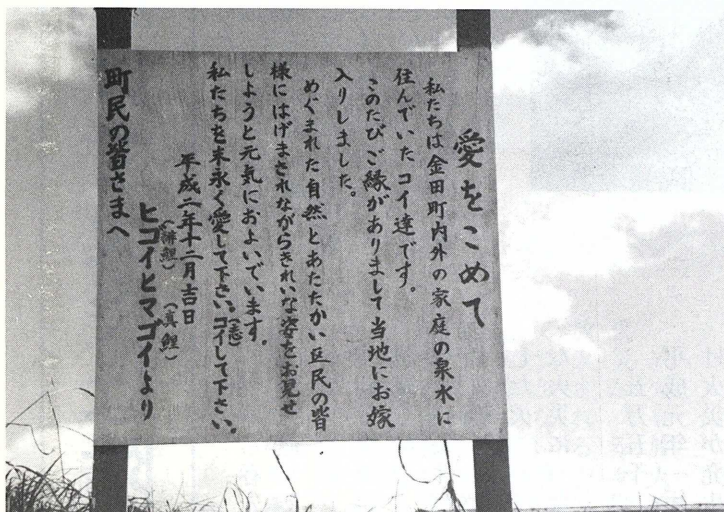 愛をこめて
私たちは金田町内外の家庭の泉水に
住んでいたコイ達です。
このたびご縁がありまして当地にお嫁
入りしました。
めぐまれた自然とあたたかい区民の皆
様にはげまされながらきれいな姿をお見せ
しようと元気におよいでいます。
私たちを末永く愛して下さい。コイ(恋)して下さい。
平成二年十二月吉日
ヒコイ(緋鯉)とマゴイ(真鯉)より
町民の皆さまへ